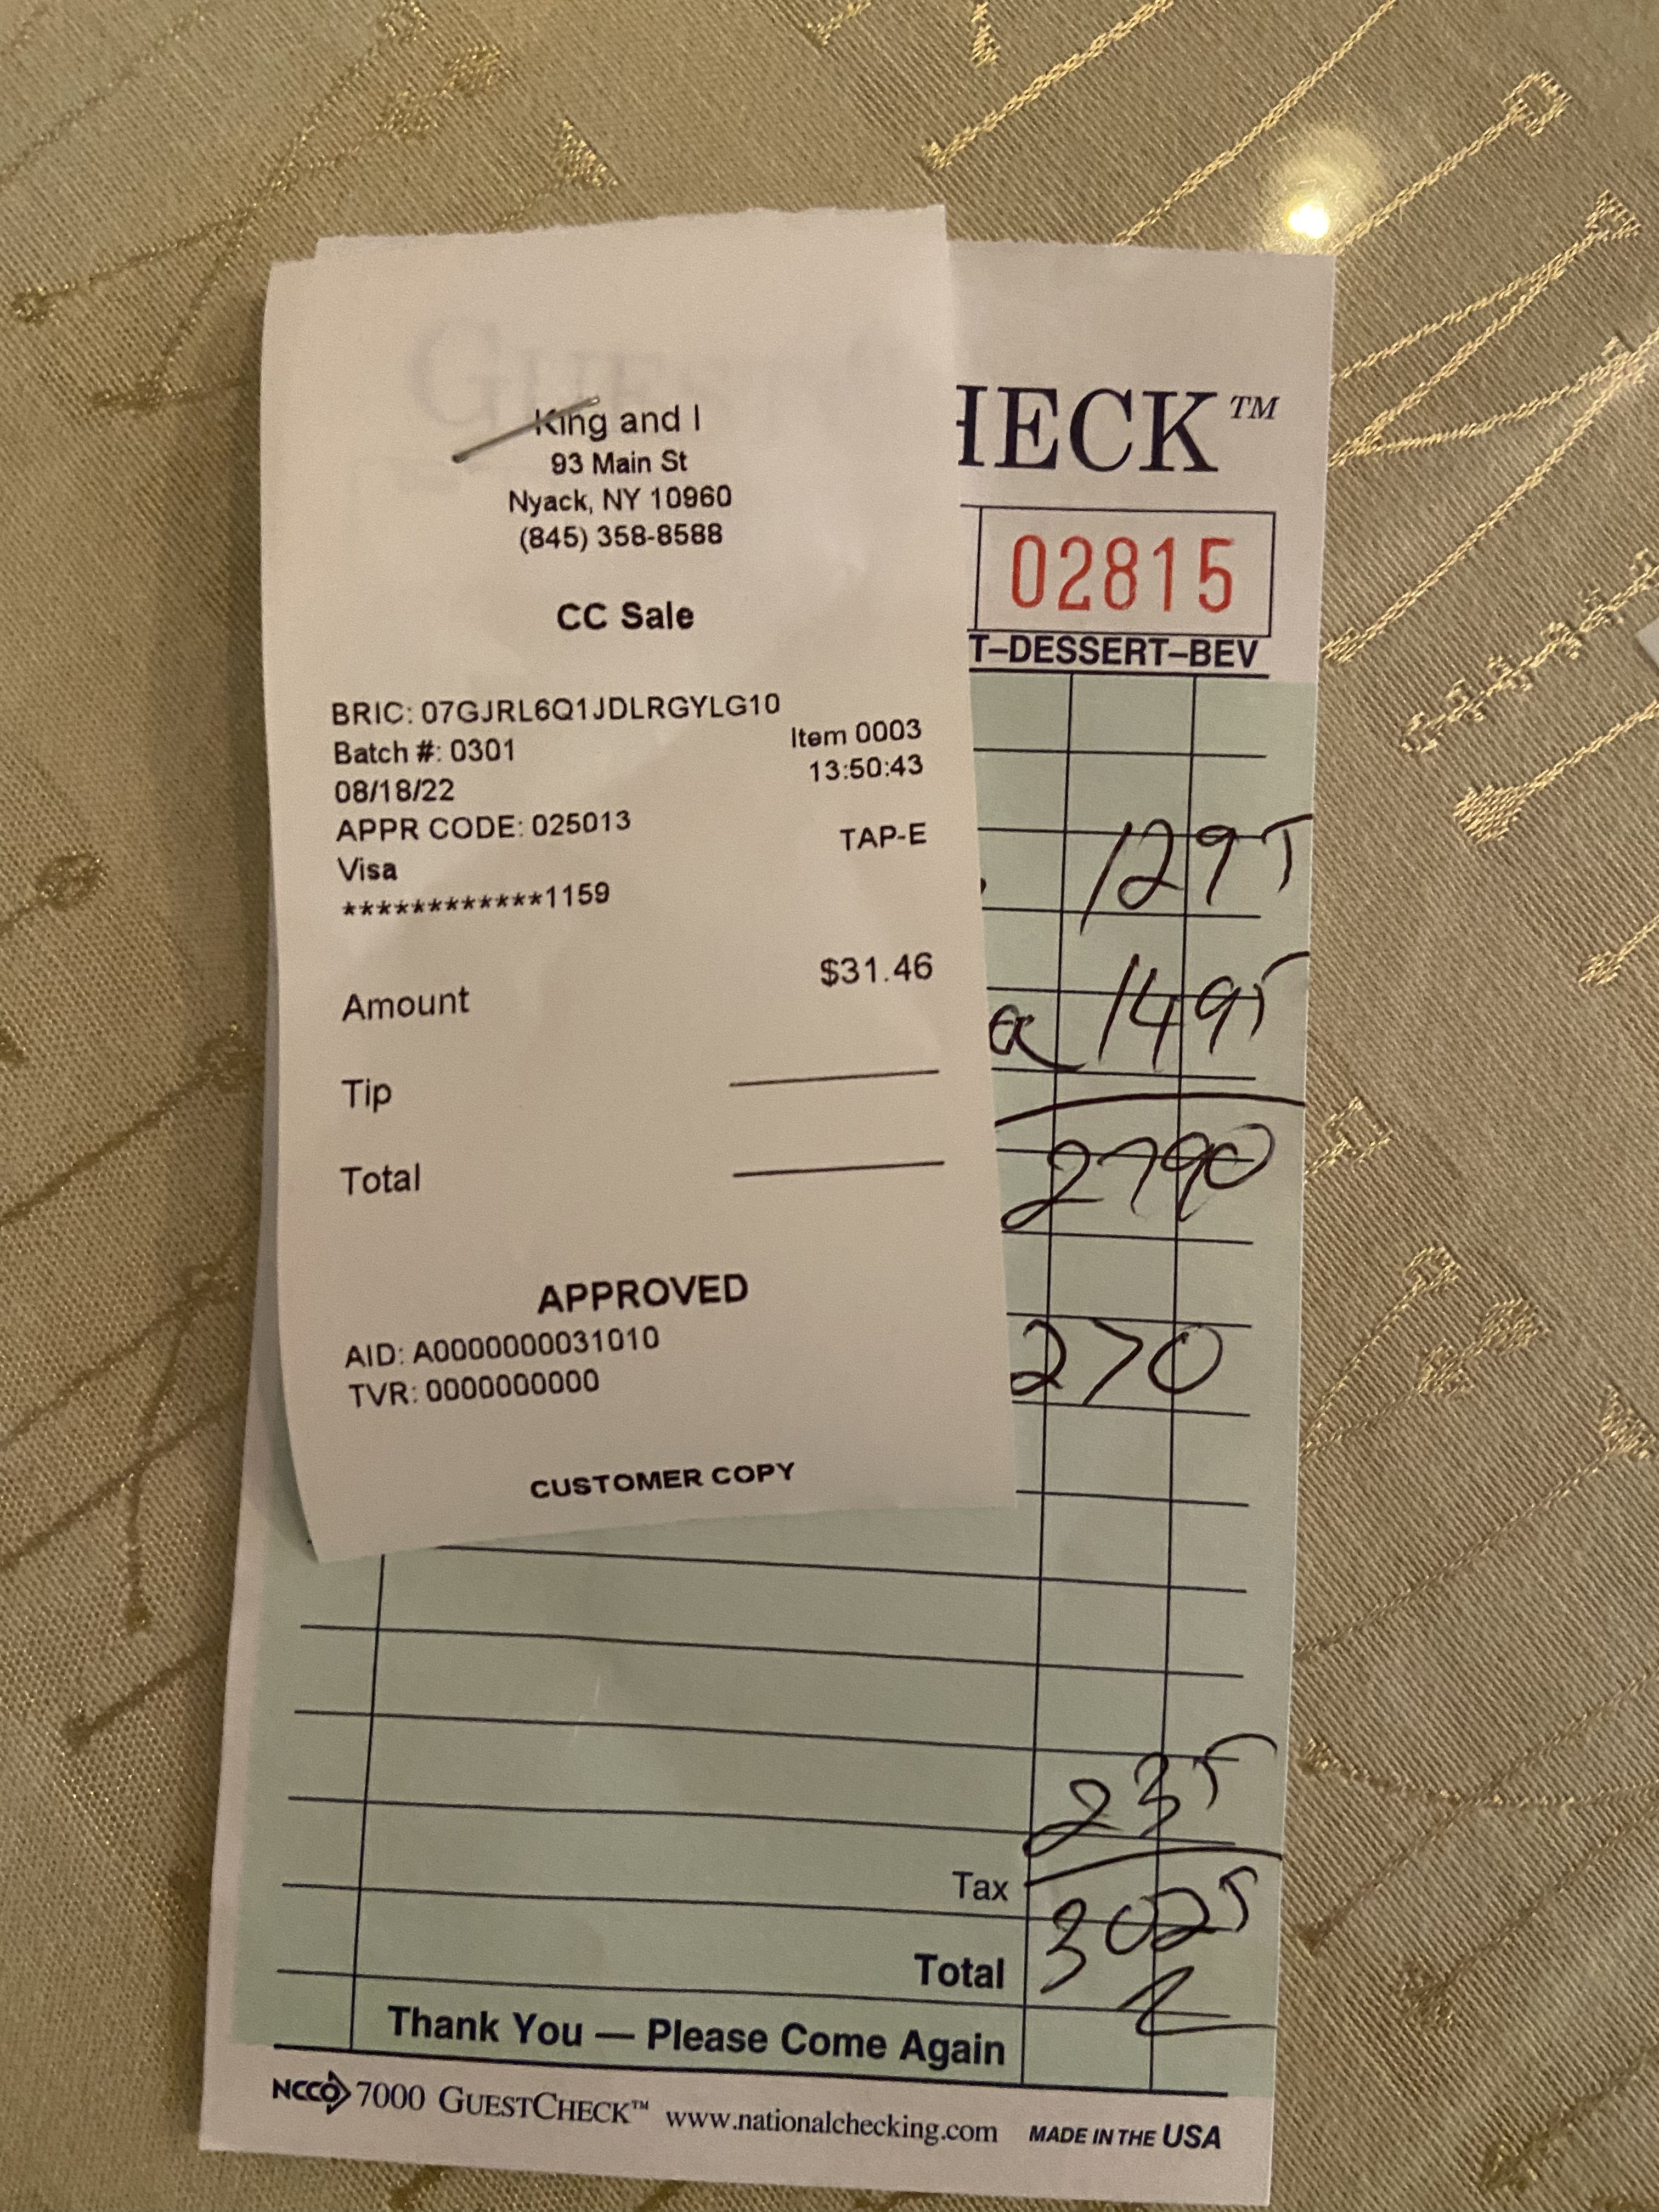 King and I
93 Main St
Nyack, NY 10960
(845) 358-8588
CC Sale
BRIC: 07GJRL6Q1JDLRGYLG10
Batch #: 0301 Item 0003
08/18/22 13:50:43
APPR CODE: 025013
Visa TAP-E
************1159
Amount $31.46
Tip
Total
APPROVED
AID: A0000000031010
TVR: 0000000000
CUSTOMER COPY
HECK™
02815
T–DESSERT–BEV
1295
1495
2790
270
235
Tax
3025
Total
Thank You — Please Come Again
NCCO 7000 GUESTCHECK™ www.nationalchecking.com MADE IN THE USA